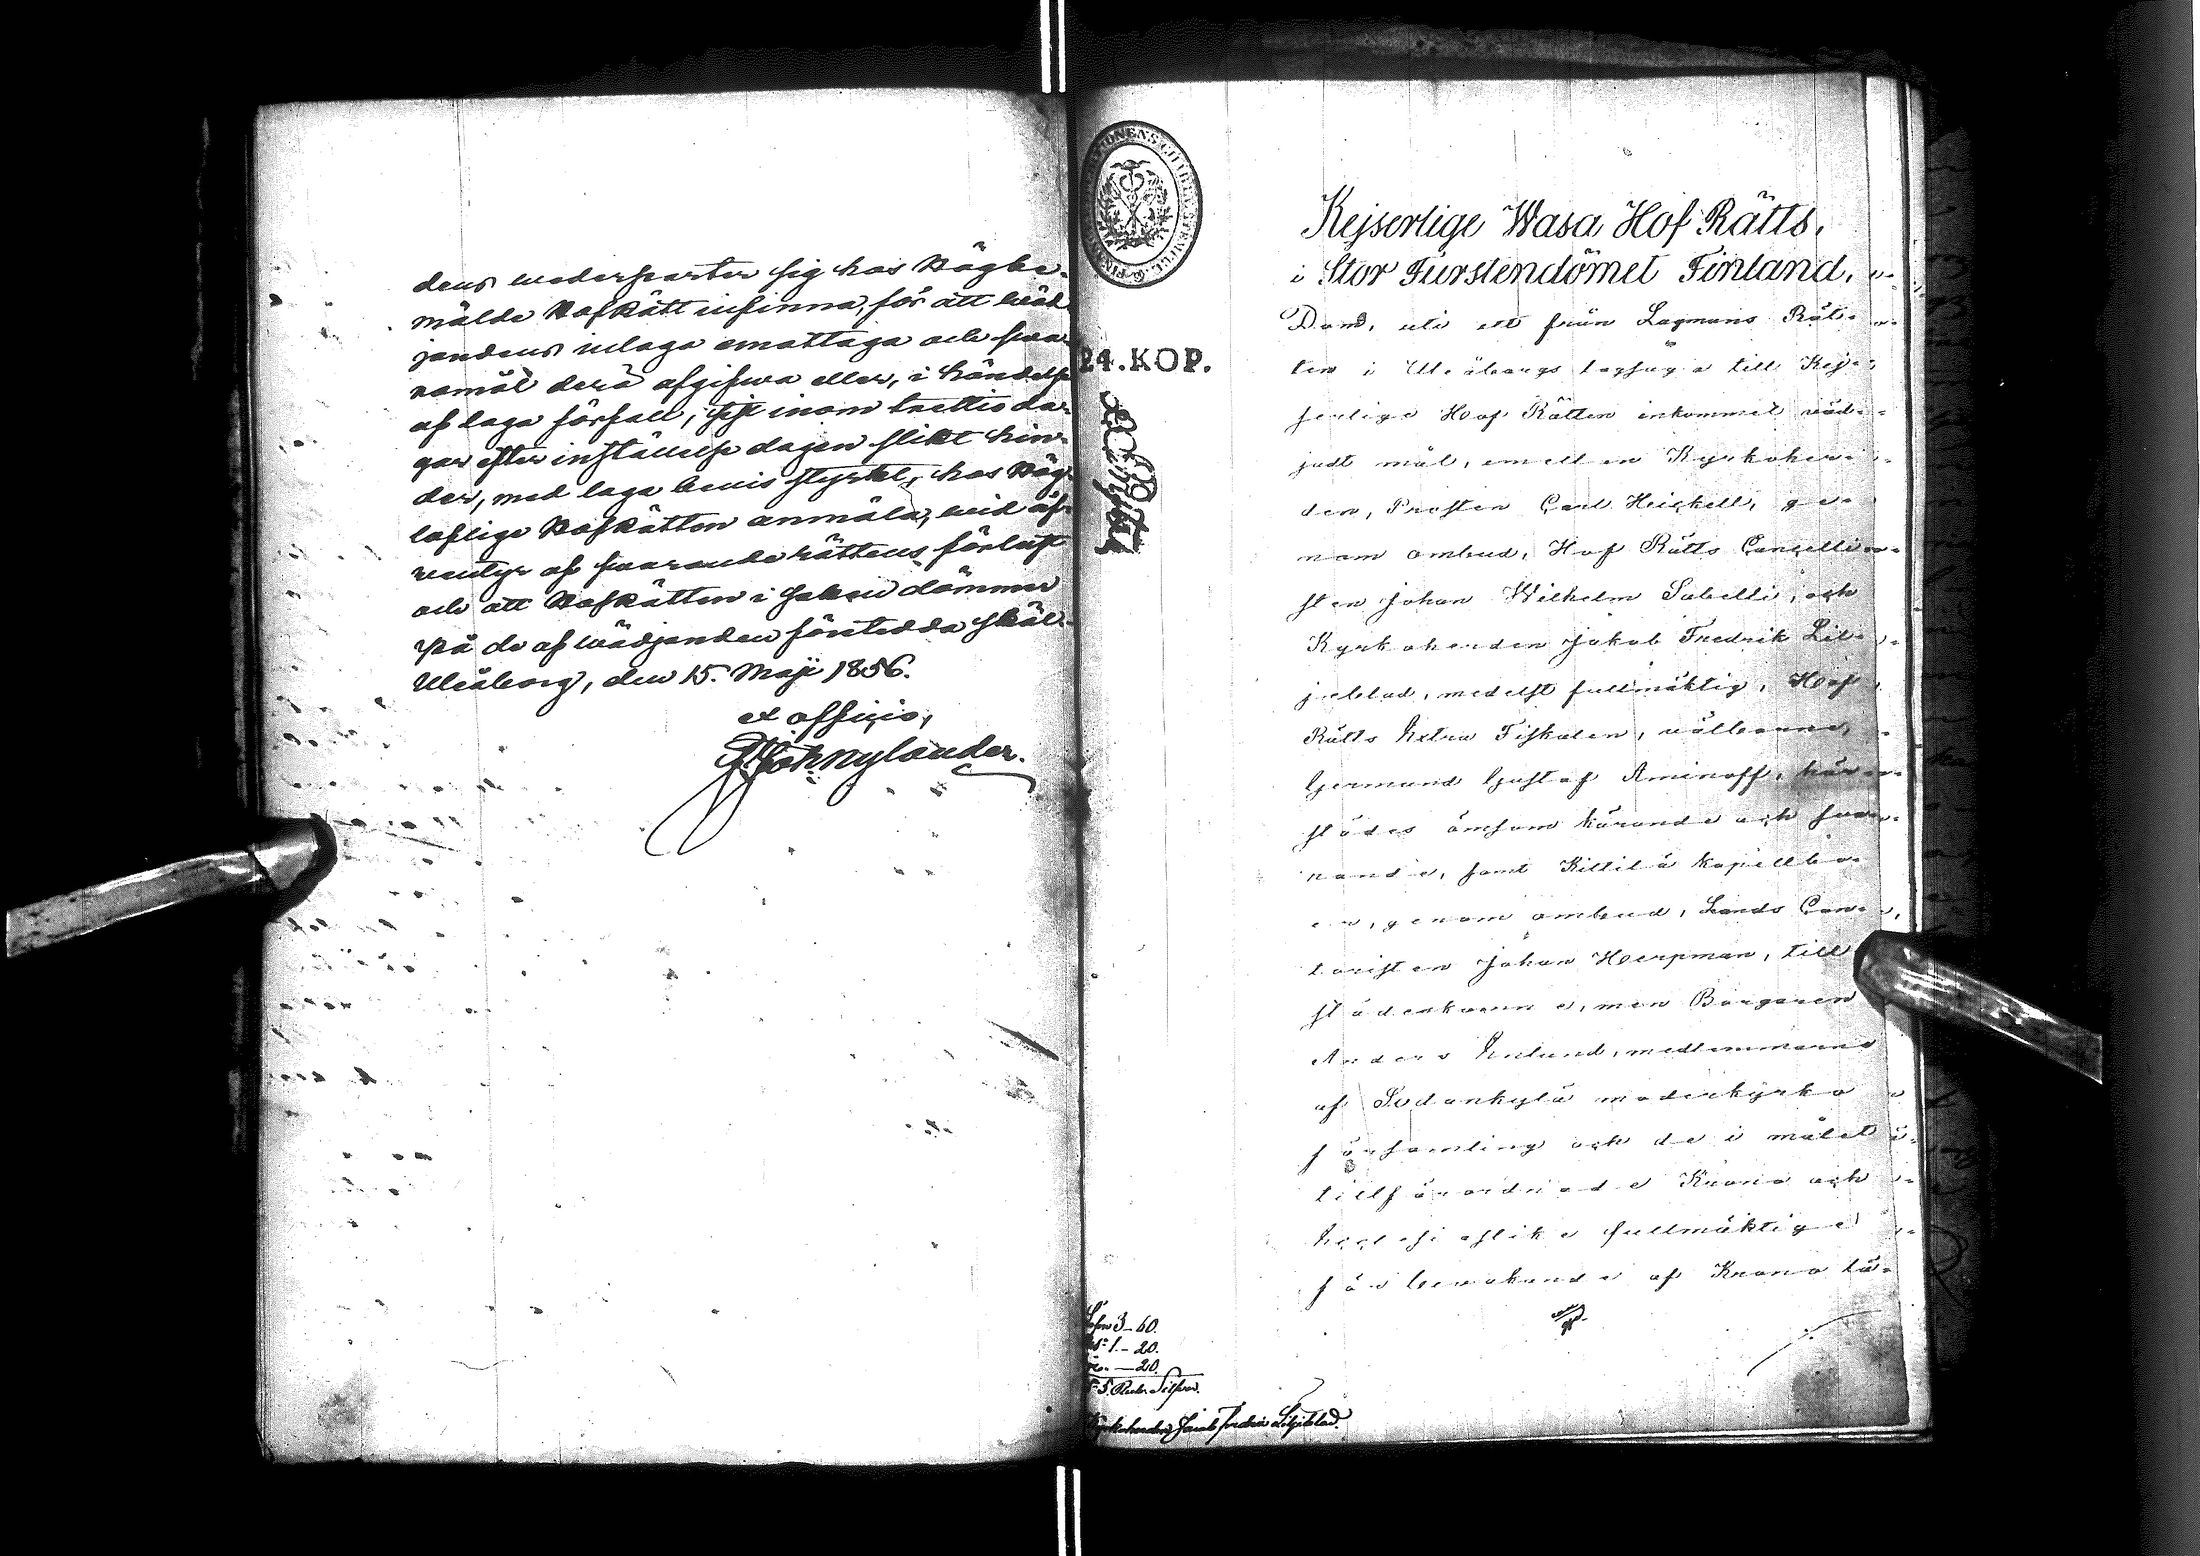 dens wederparter sig hos Högbe-
mälde HofRätt infinna, för att wäd-
jandens inlaga emottaga och swa-
romål derå afgifwa eller, i händelse
af laga förfall, sist inom trettio da-
gar efter inställelse dagen slikt hin-
der, med laga bewis styrkt, hos Hög-
loflige HofRätten anmäla, wid äf-
wentyr af swarande rättens förlust
och att HofRätten i saken dömmer
på de af wädjanden företedda skäl.
Uleåborg, den 15. Maji 1856.
ex officio,
Joh. Nylander.
24. KOP.
Kejserlige Wasa Hof Rätts,
i Stor Furstendömet Finland,
Dom, uti ett från Lagmans Rät-
ten i Uleåborgs lagsaga till Kej-
serlige Hof Rätten inkommet väd-
jadt mål, emellan Kyrkoher-
den, Prosten Carl Heickell, ge-
nom ombud, Hof Rätts Cancelli-
sten Johan Wilhelm Sabelli, och
Kyrkoherden Jakob Fredrik Lil-
jeblad, medelst fullmäktig, Hof
Rätts Extra Fiskalen, välborne,
Germund Gustaf Aminoff, här-
städes ömsom kärande och swa-
rande, samt Kittilä kapellbo-
er, genom ombud, Lands Can-
toristen Johan Herpman, till
städeskomne, men Borgaren
Anders Enlund, medlemmarne
af Sodankylä moderkyrko
församling och de i målet
tillförordnade Krono och
Ecclesiastike fullmäktige
för bewakande af Krono tä-
3_60.
1._20.
_20.
5. Rub. Silfwer.
Kyrkoherden Jacob Fredric Liljeblad.